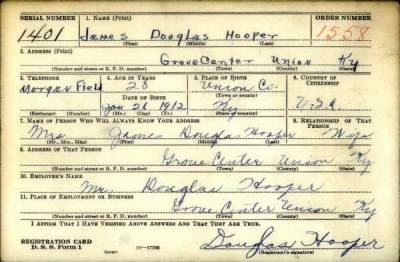 SERIAL NUMBER 1. NAME (Print) ORDER NUMBER
1401 James Douglas Hooper 1558
(First) (Middle) (Last)
2. ADDRESS (Print)
GroveCenter Union Ky
(Number and street or R. F. D. number) (Town) (County) (State)
3. TELEPHONE 4. AGE IN YEARS 5. PLACE OF BIRTH 6. COUNTRY OF CITIZENSHIP
Morganfield 28 Union Co.
DATE OF BIRTH (Town or county)
Jan 26 1912 Ky U.S.A.
(Exchange) (Number) (Mo.) (Day) (Yr.) (State or country)
7. NAME OF PERSON WHO WILL ALWAYS KNOW YOUR ADDRESS 8. RELATIONSHIP OF THAT PERSON
Mrs James Douglas Hooper Wife
(Mr., Mrs., Miss) (First) (Middle) (Last)
9. ADDRESS OF THAT PERSON
Grove Center Union Ky
(Number and street or R. F. D. number) (Town) (County) (State)
10. EMPLOYER'S NAME
Mr. Douglas Hooper
11. PLACE OF EMPLOYMENT OR BUSINESS
Grove Center Union Ky
(Number and street or R. F. D. number) (Town) (County) (State)
I AFFIRM THAT I HAVE VERIFIED ABOVE ANSWERS AND THAT THEY ARE TRUE.
REGISTRATION CARD
D. S. S. Form 1 Douglas Hooper
(Registrant's signature)